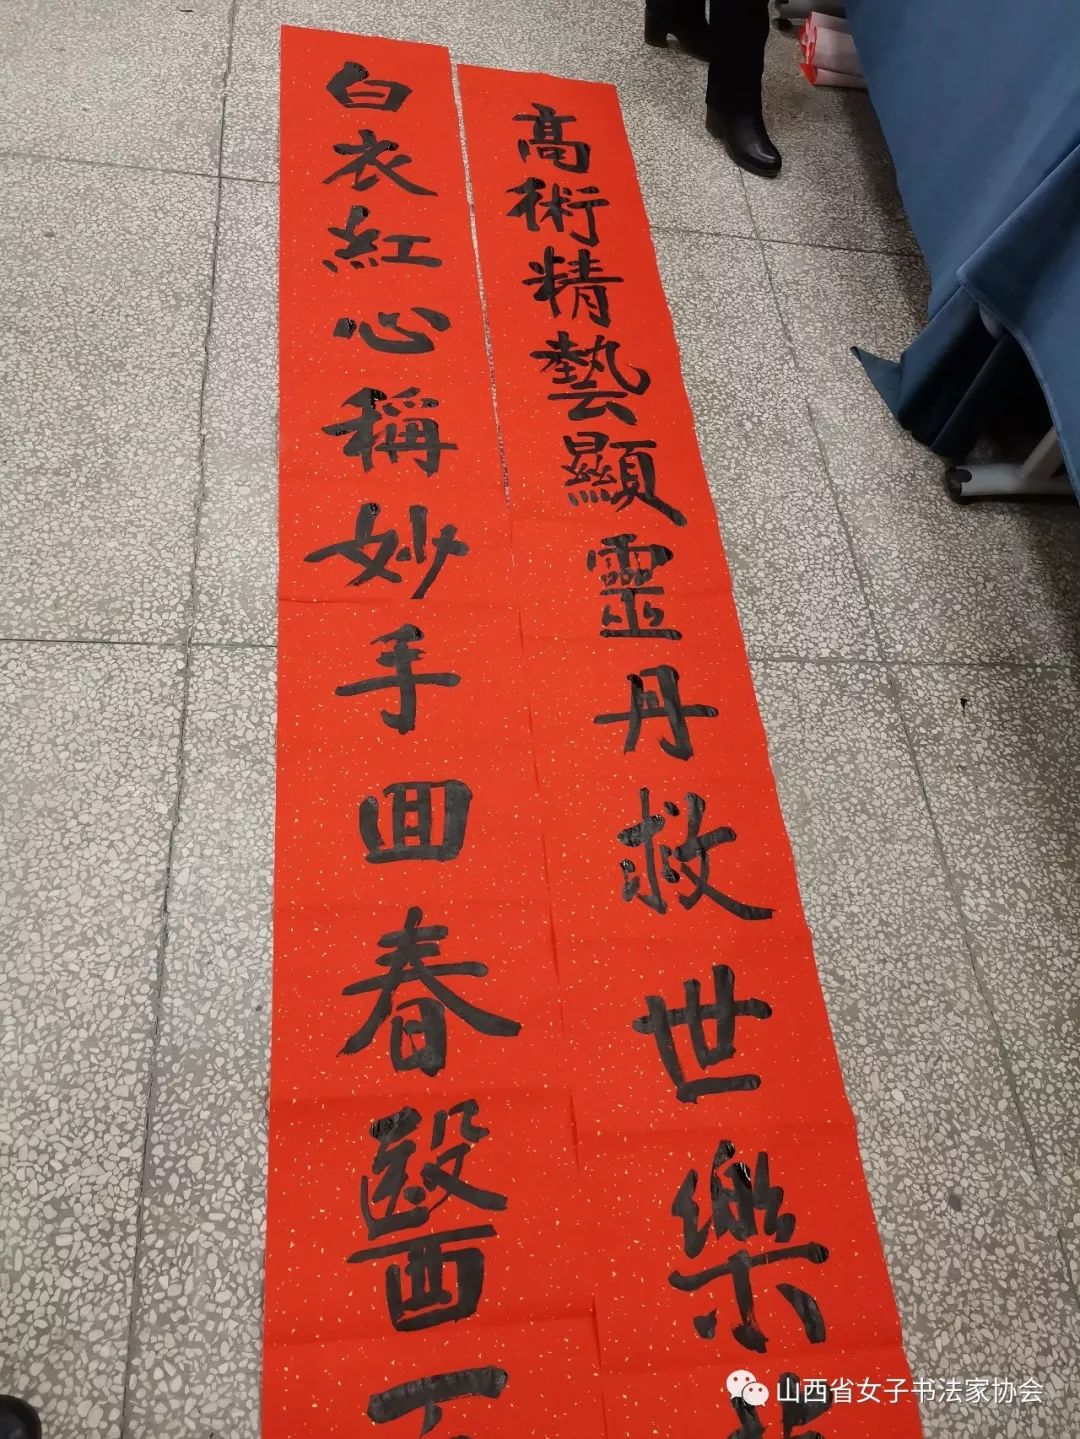 高術精藝顯靈丹救世樂
白衣紅心稱妙手回春醫
山西省女子书法家协会